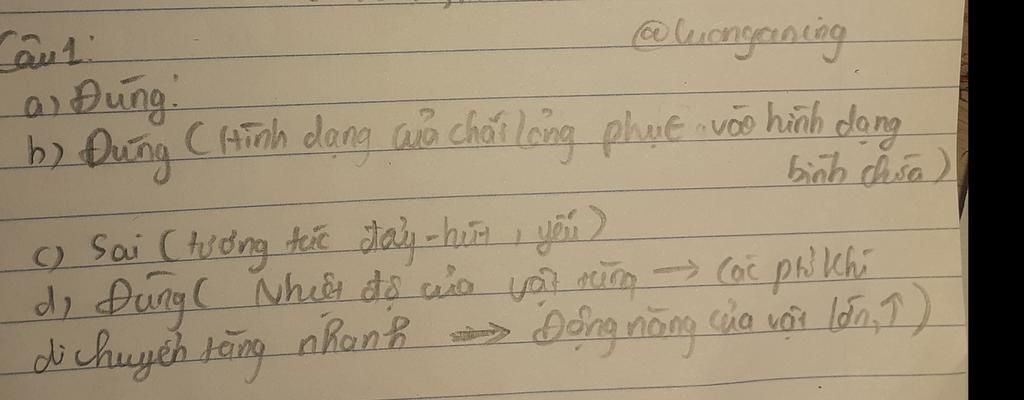 @luonganing
Câu 1:
a) Đúng:
b) Đúng (Hình dạng của chất lỏng phụt vào hình dạng
bình chứa)
c) Sai (tương tác đẩy-hút, yếu)
d) Đúng ( Nhiệt độ của vật tăng → Các pt khí
di chuyển tăng nhanh ⟹ Động năng của vật lớn, ↑)